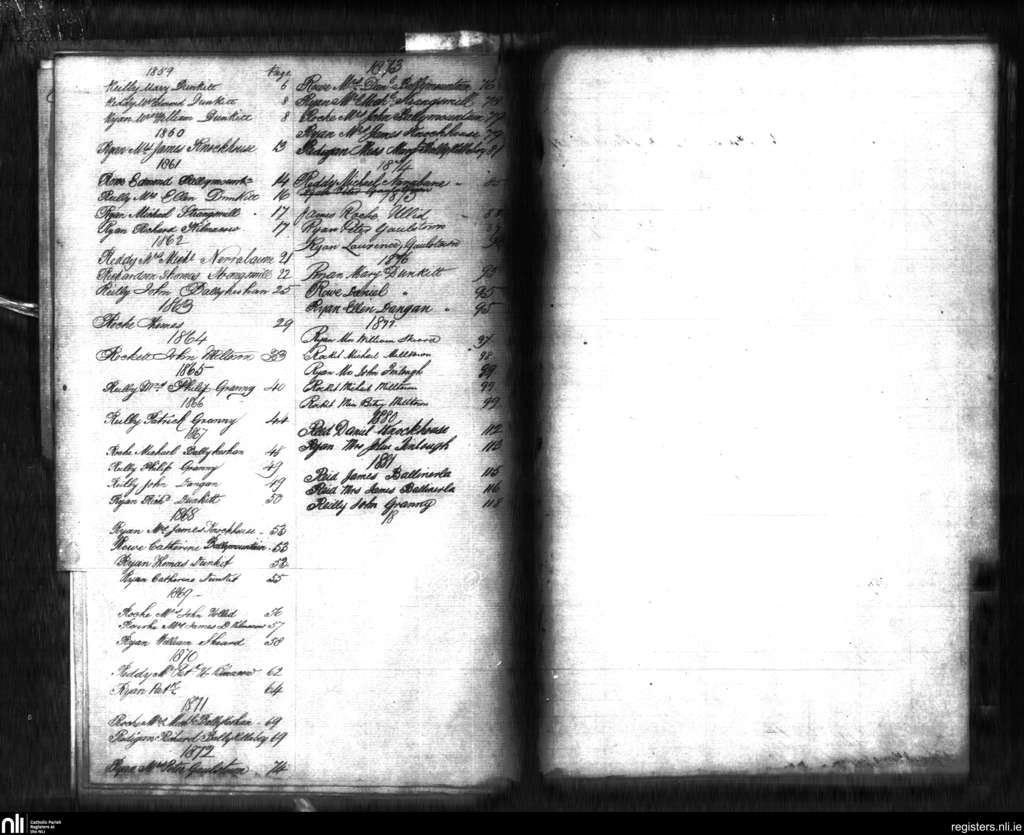 1859 Page
Reilly Mary Dunkitt 6
Reddy Mrs Edmond Dunkitt 8
Ryan Mrs William Dunkitt 8
1860
Ryan Mrs James Knockhouse 13
1861
Rowe Edmond Ballymountn 14
Reilly Mrs Ellen Dunkitt 16
Ryan Michael Strangsmill 17
Ryan Richard Kilmacow 17
1862
Reddy Mrs Michl 21
Richardson Thomas Strangsmill 22
Reilly John Ballykeohan 25
1863
Roche Thomas 29
1864
Rockett John Miltown 33
1865
Reilly Mrs Philip Granny 40
1866
Reilly Patrick Granny 44
1867
Roche Michael Ballykeohan 48
Reilly Philip Granny 49
Reilly John Dangan 49
Ryan Richd Dunkitt 50
1868
Ryan Mrs James Knockhouse 53
Rowe Catherine Ballymountain 53
Ryan Thomas Dunkit 53
Ryan Catherine Dunkit 55
1869
Roche Mrs John Ullid 56
Rourke Mrs James D Kilmacow 57
Ryan William Skeard 58
1870
Reddy Mr Patk U. Kilmacow 62
Ryan Patk 64
1871
Roche Mrs Michl Ballykeohan 69
Radigan Richard Ballykillaboy 69
1872
Ryan Mrs Peter Gaulstown 74
1873
Rowe Mrs Danl Ballymountain 76
Ryan Mr Michl Strangsmill 78
Roche Mrs John Ballymountain 79
Ryan Mrs James Knockhouse 79
Radigan Miss Mary Ballykillaboy 81
1874
Reddy Michael
1875
James Roche Ullid 88
Ryan Peter Gaulstown
Ryan Laurence Gaulstown 90
1876
Ryan Mary Dunkitt 93
Rowe Daniel " 95
Ryan Ellen Dangan 95
1877
Ryan Mrs William Skeard 97
Rocket Michael Milltown 98
Ryan Mrs John Inlough 99
Rocket Michael Milltown 99
Rocket Miss Betsy Milltown 99
1880
Reid Daniel Knockhouse 112
Ryan Mrs John Inlough 113
1881
Reid James Ballinerla 115
Reid Mrs James Ballinerla 116
Reilly John Granny 118
18
nli
Catholic Parish
Registers at
the NLI
registers.nli.ie